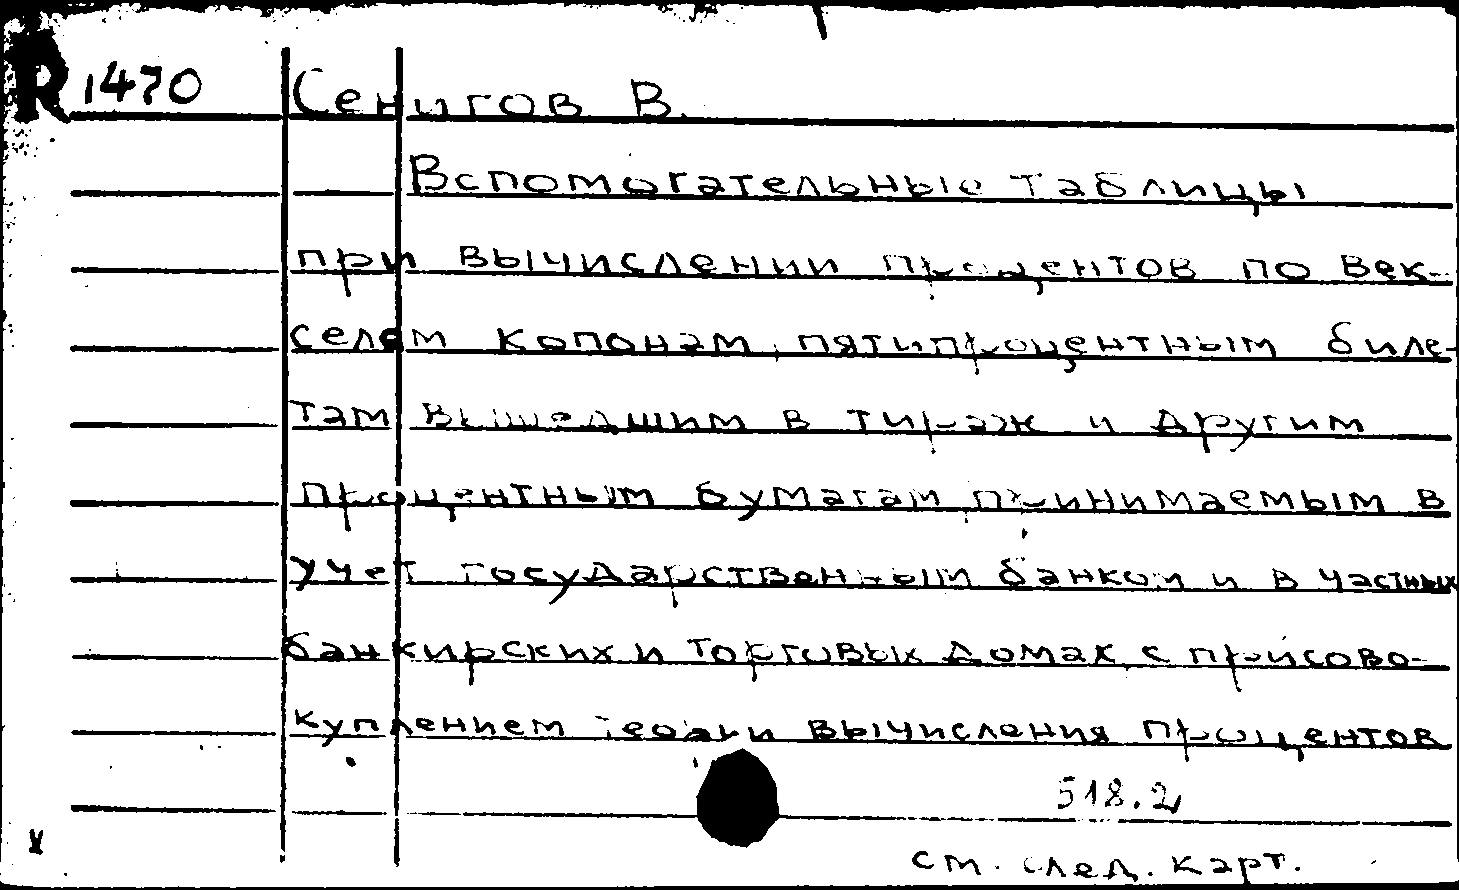 R 1470 Сенигов В.
Вспомогательные таблицы
при вычислении процентов по век-
селям копонам, пятипроцентным биле-
там вышедшим в тираж и другим
процентным бумагам, принимаемым в
учет государственным банком и в частных
банкирских и торговых домах с присово-
куплением теории вычисления процентов
518.2
см. след. карт.